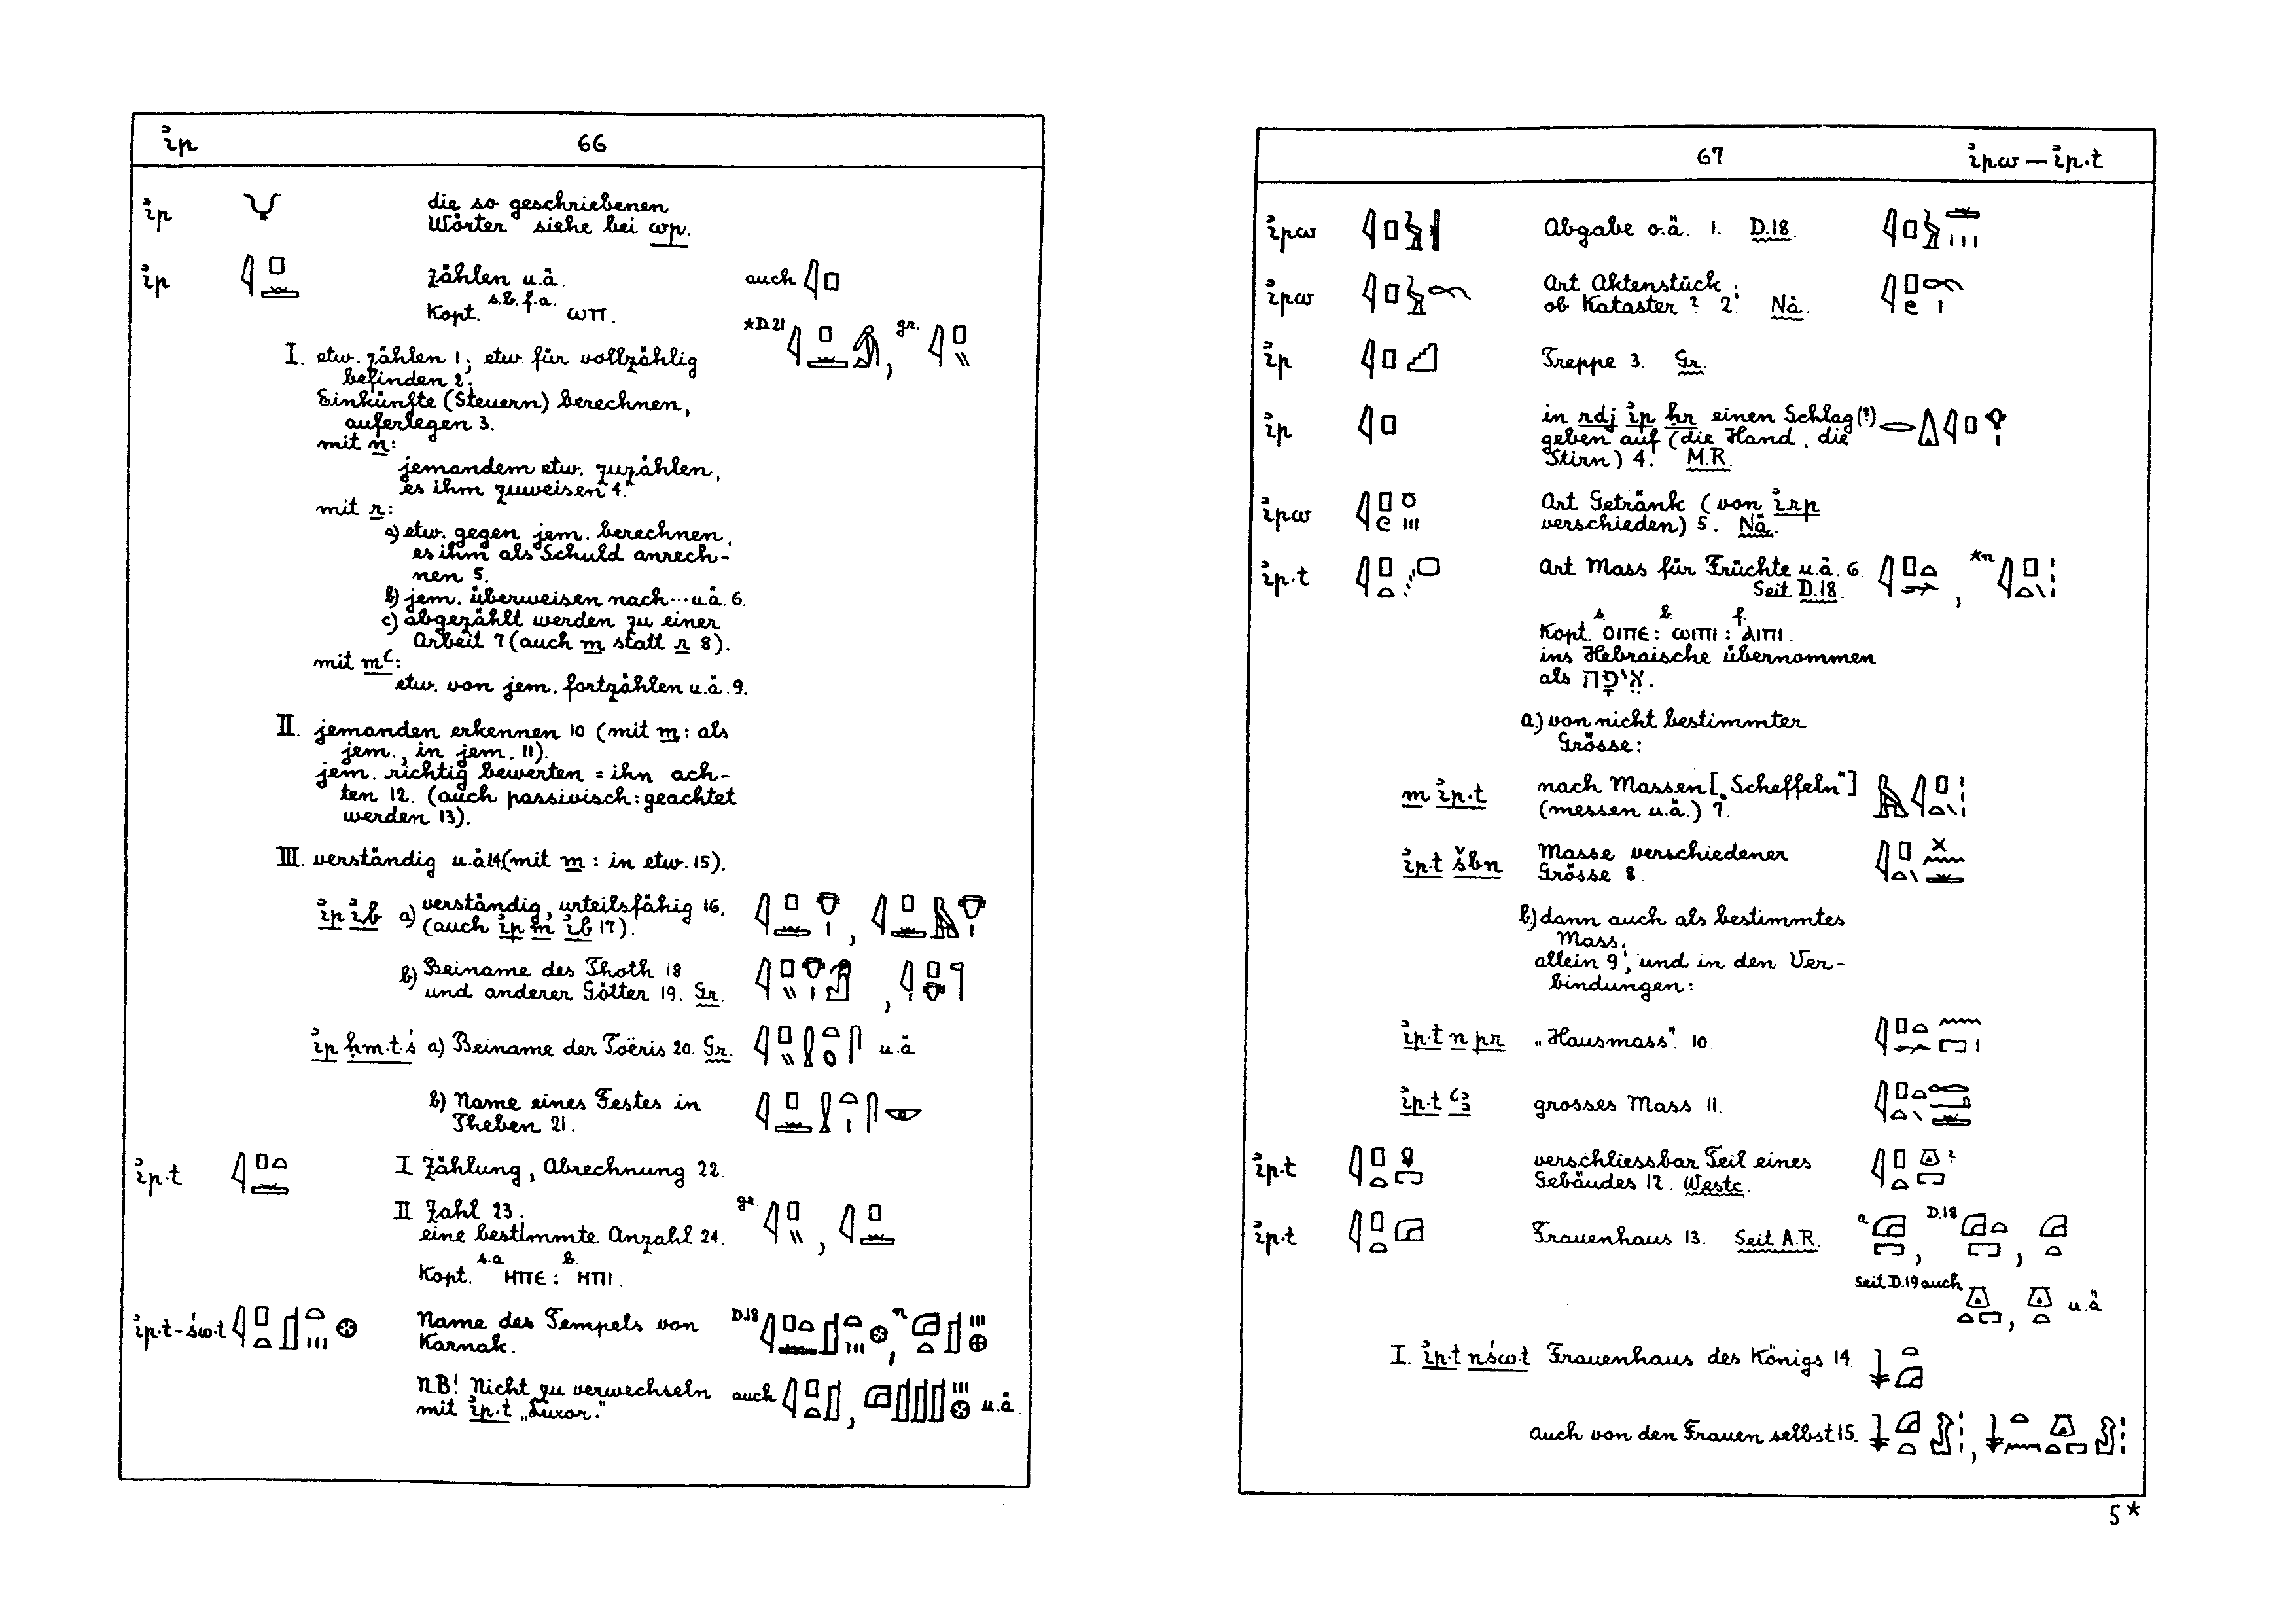 ꞽp 66
ꞽp die so geschriebenen
Wörter siehe bei wp.
ꞽp zählen u.ä. auch
Kopt. s.b.f.a. ⲱⲡ.
*D.21 , gr.
I. etw. zählen 1; etw. für vollzählig
befinden 2.
Einkünfte (Steuern) berechnen,
auferlegen 3.
mit n:
jemandem etw. zuzählen,
es ihm zuweisen 4.
mit r:
a) etw. gegen jem. berechnen,
es ihm als Schuld anrech-
nen 5.
b) jem. überweisen nach... u.ä. 6.
c) abgezählt werden zu einer
Arbeit 7 (auch m statt r 8).
mit mꜥ:
etw. von jem. fortzählen u.ä. 9.
II. jemanden erkennen 10 (mit m: als
jem., in jem. 11).
jem. richtig bewerten = ihn ach-
ten 12. (auch passivisch: geachtet
werden 13).
III. verständig u.ä 14 (mit m: in etw. 15).
ꞽp ꞽb a) verständig, urteilsfähig 16,
(auch ꞽp m ꞽb 17).
b) Beiname des Thoth 18
und anderer Götter 19. Gr.
ꞽp ḥm.t.ś a) Beiname der Toëris 20. Gr. u.ä
b) Name eines Festes in
Theben 21.
ꞽp.t I Zählung, Abrechnung 22.
II Zahl 23. gr.
eine bestimmte Anzahl 24.
Kopt. s.a ⲏⲡⲉ: b. ⲏⲡⲓ.
ꞽp.t-św.t Name des Tempels von D.18 , n
Karnak.
N.B! Nicht zu verwechseln auch , u.ä.
mit ꞽp.t „Luxor."
67 ꞽpw — ꞽp.t
ꞽpw Abgabe o.ä. 1. D.18.
ꞽpw Art Aktenstück;
ob Kataster? 2. Nä.
ꞽp Treppe 3. Gr.
ꞽp in rdj ꞽp ḥr einen Schlag (?)
geben auf (die Hand, die
Stirn) 4. M.R.
ꞽpw Art Getränk (von ꞽrp
verschieden) 5. Nä.
ꞽp.t Art Mass für Früchte u.ä. 6. , *n
Seit D.18.
Kopt. s. ⲟⲓⲡⲉ: b. ⲱⲓⲡⲓ: f. ⲁⲓⲡⲓ.
ins Hebraische übernommen
als אֵיפָה.
a.) von nicht bestimmter
Grösse:
m ꞽp.t nach Massen [„Scheffeln"]
(messen u.ä.) 7.
ꞽp.t šbn Masse verschiedener
Grösse 8.
b) dann auch als bestimmtes
Mass,
allein 9, und in den Ver-
bindungen:
ꞽp.t n pr „Hausmass". 10.
ꞽp.t ꜥꜣ grosses Mass 11.
ꞽp.t verschliessbar Teil eines ?
Gebäudes 12. Westc.
ꞽp.t Frauenhaus 13. Seit A.R. a , D.18 ,
seit D.19 auch , u.ä
I. ꞽp.t nśw.t Frauenhaus des Königs 14.
auch von den Frauen selbst 15. ,
5*